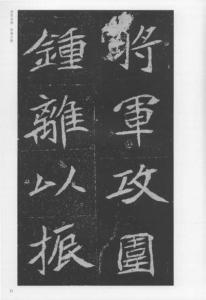 將軍攻圍
鍾離以振